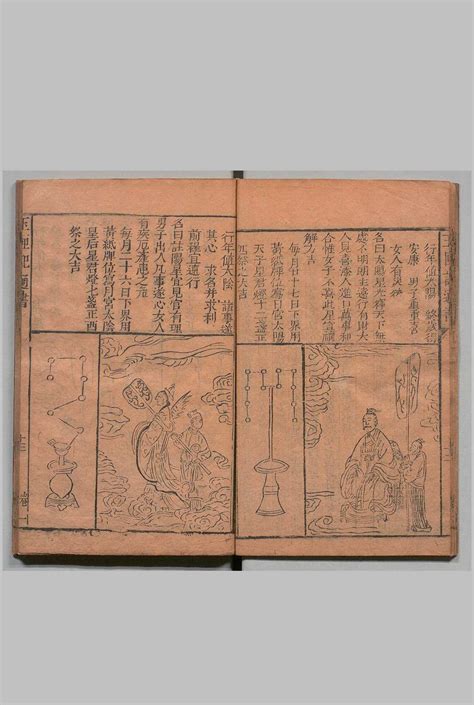 行年值太陽 終歲得
安康 男子重重吉
女人有災殃
名曰太陽星帝釋天下無
處不明明主遠行有財大
人見喜添人進口萬事和
合惟女子不喜此星當禳
解方吉
每月二十七日下界用
黃紙牌位寫日宮太陽
天子星君燈十二盞正
西祭之大吉
行年值太陰 諸事遂
其心 求名並求利
前程宜遠行
名曰註陽星宜見官有理
男子出入凡事遂心女人
有疾厄產危之
每月二十六日下界用
黃紙牌位寫月宮太陰
皇后星君燈七盞正西
祭之大吉
玉匣記通書
十三